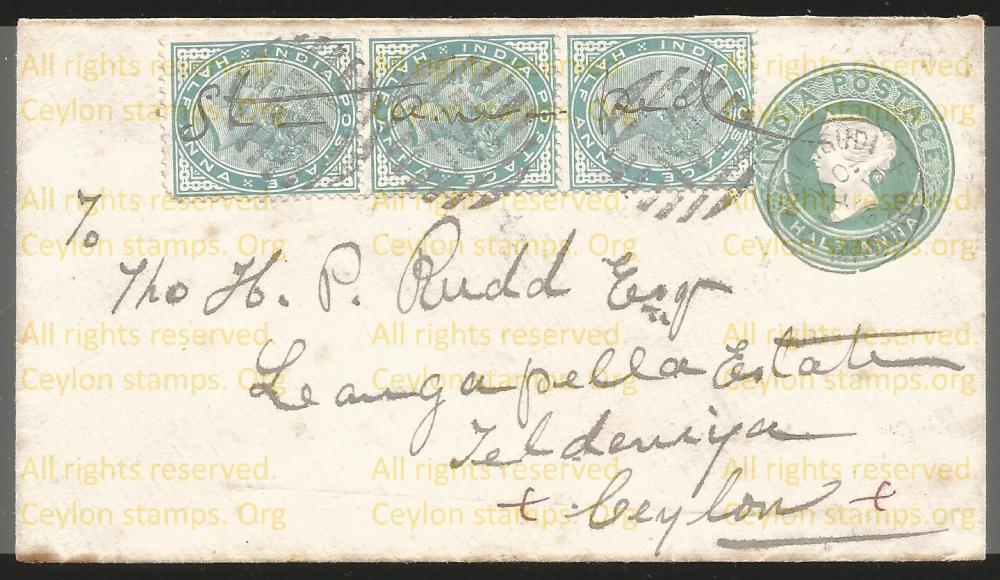 INDIA POSTAGE HALF ANNA
INDIA POSTAGE HALF ANNA
INDIA POSTAGE HALF ANNA
INDIA POSTAGE
HALF ANNA
To
Tho H. P. Rudd Esq
Leangapella Estate
Teldeniya
+ Ceylon +
All rights reserved. All rights reserved. All rights reserved.
Ceylon stamps. Org Ceylon stamps. Org Ceylon stamps. Org
All rights reserved. All rights reserved. All rights reserved.
Ceylon stamps. Org Ceylon stamps. Org Ceylon stamps. Org
All rights reserved. All rights reserved. All rights reserved.
Ceylon stamps. Org Ceylon stamps. Org Ceylon stamps. Org
All rights reserved. All rights reserved. All rights reserved.
Ceylon stamps. Org Ceylon stamps. Org Ceylon stamps. Org